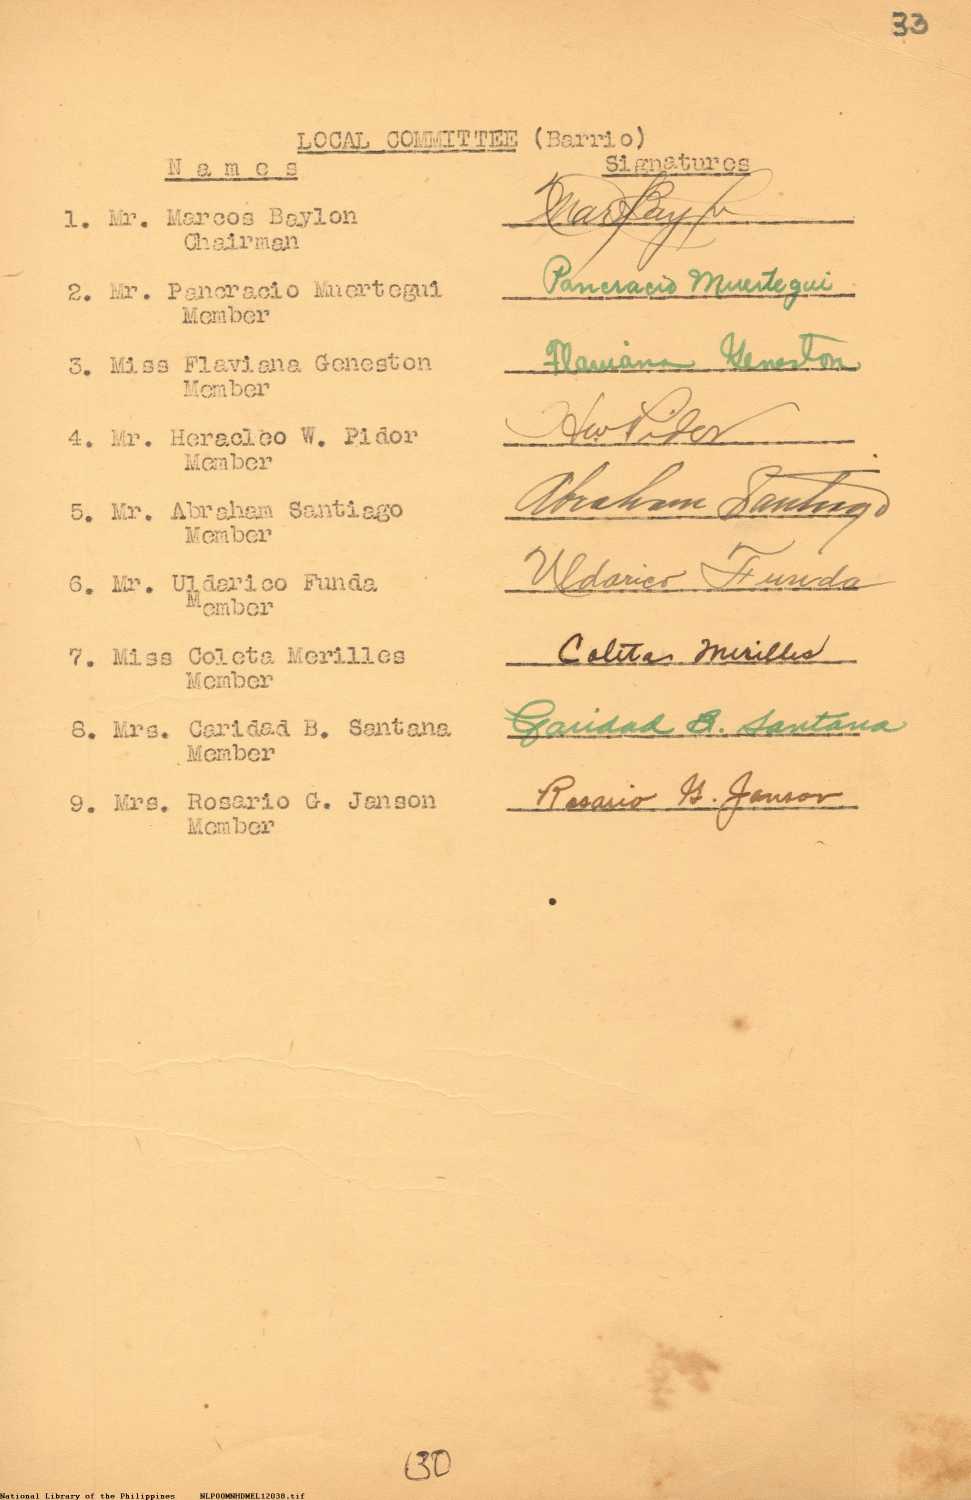 33
LOCAL COMMITTEE (Barrio)
Names Signatures
1. Mr. Marcos Baylon
Chairman
2. Mr. Pancracio Muertegui Pancracio Muertegui
Member
3. Miss Flaviana Geneston Flaviana Geneston
Member
4. Mr. Heracleo W. Pidor Hw Pidor
Member
5. Mr. Abraham Santiago Abraham Santiago
Member
6. Mr. Uldarico Funda Uldarico Funda
Member
7. Miss Coleta Merilles Coleta Merilles
Member
8. Mrs. Caridad B. Santana Caridad B. Santana
Member
9. Mrs. Rosario G. Janson Rosario G. Janson
Member
30
National Library of the Philippines NLP00MNHDMEL12038.tif